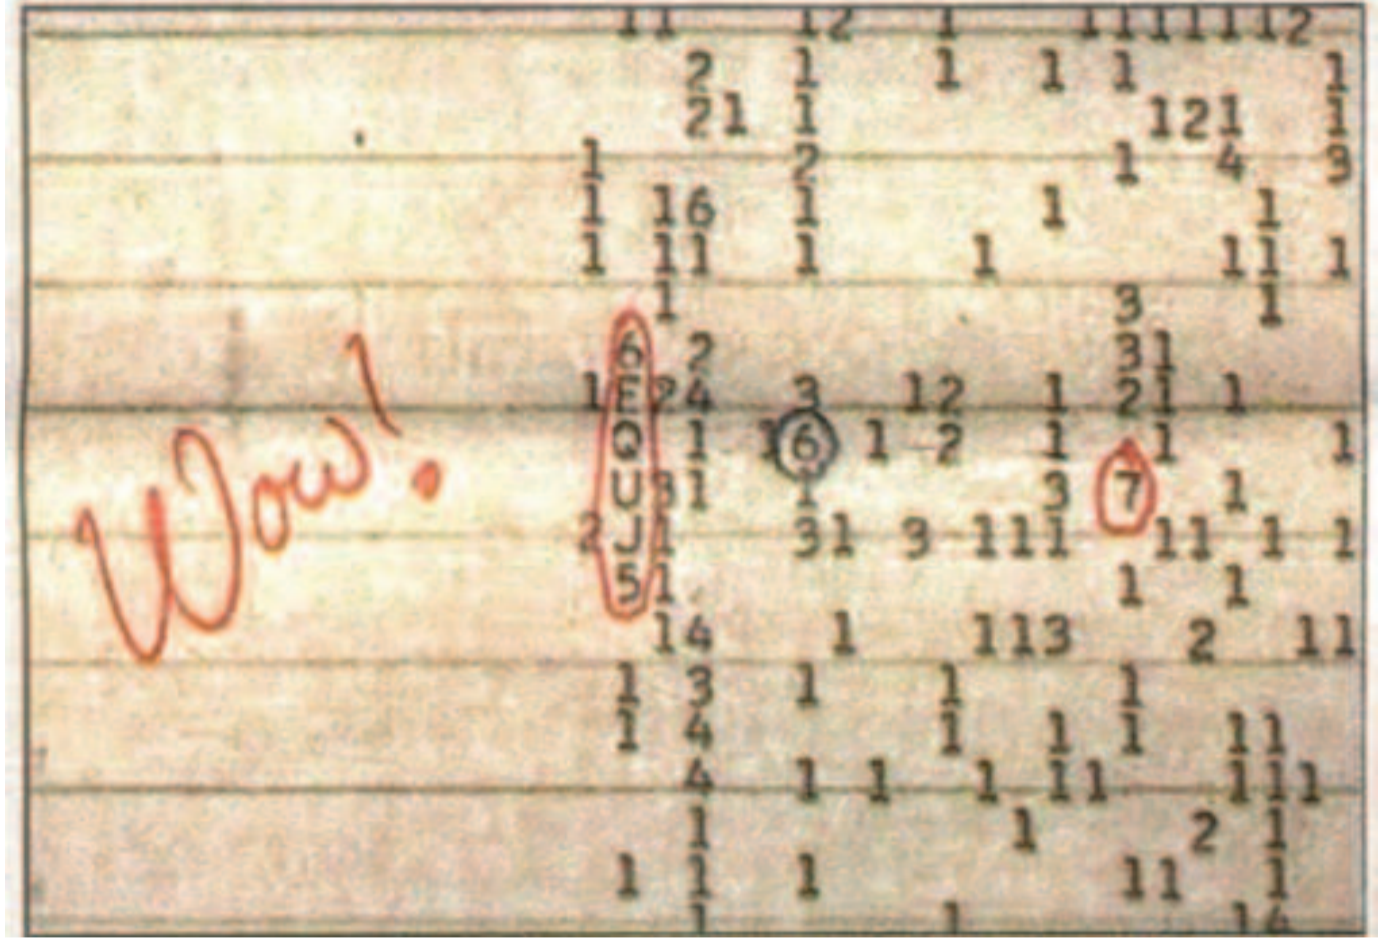 11 12 1 1111112
2 1 1 1 1 1
21 1 121 1
1 2 1 4 3
1 16 1 1 1
1 11 1 1 11 1
1 3 1
6 2 31
1E24 3 12 1 21 1
Q 1 16 1 2 1 1 1
U31 1 3 7 1
2J1 31 3 111 11 1 1
51 1 1
14 1 113 2 11
1 3 1 1 1
1 4 1 1 1 11
4 1 1 1 11 111
1 1 2 1
1 1 1 11 1
1 1 14
Wow!